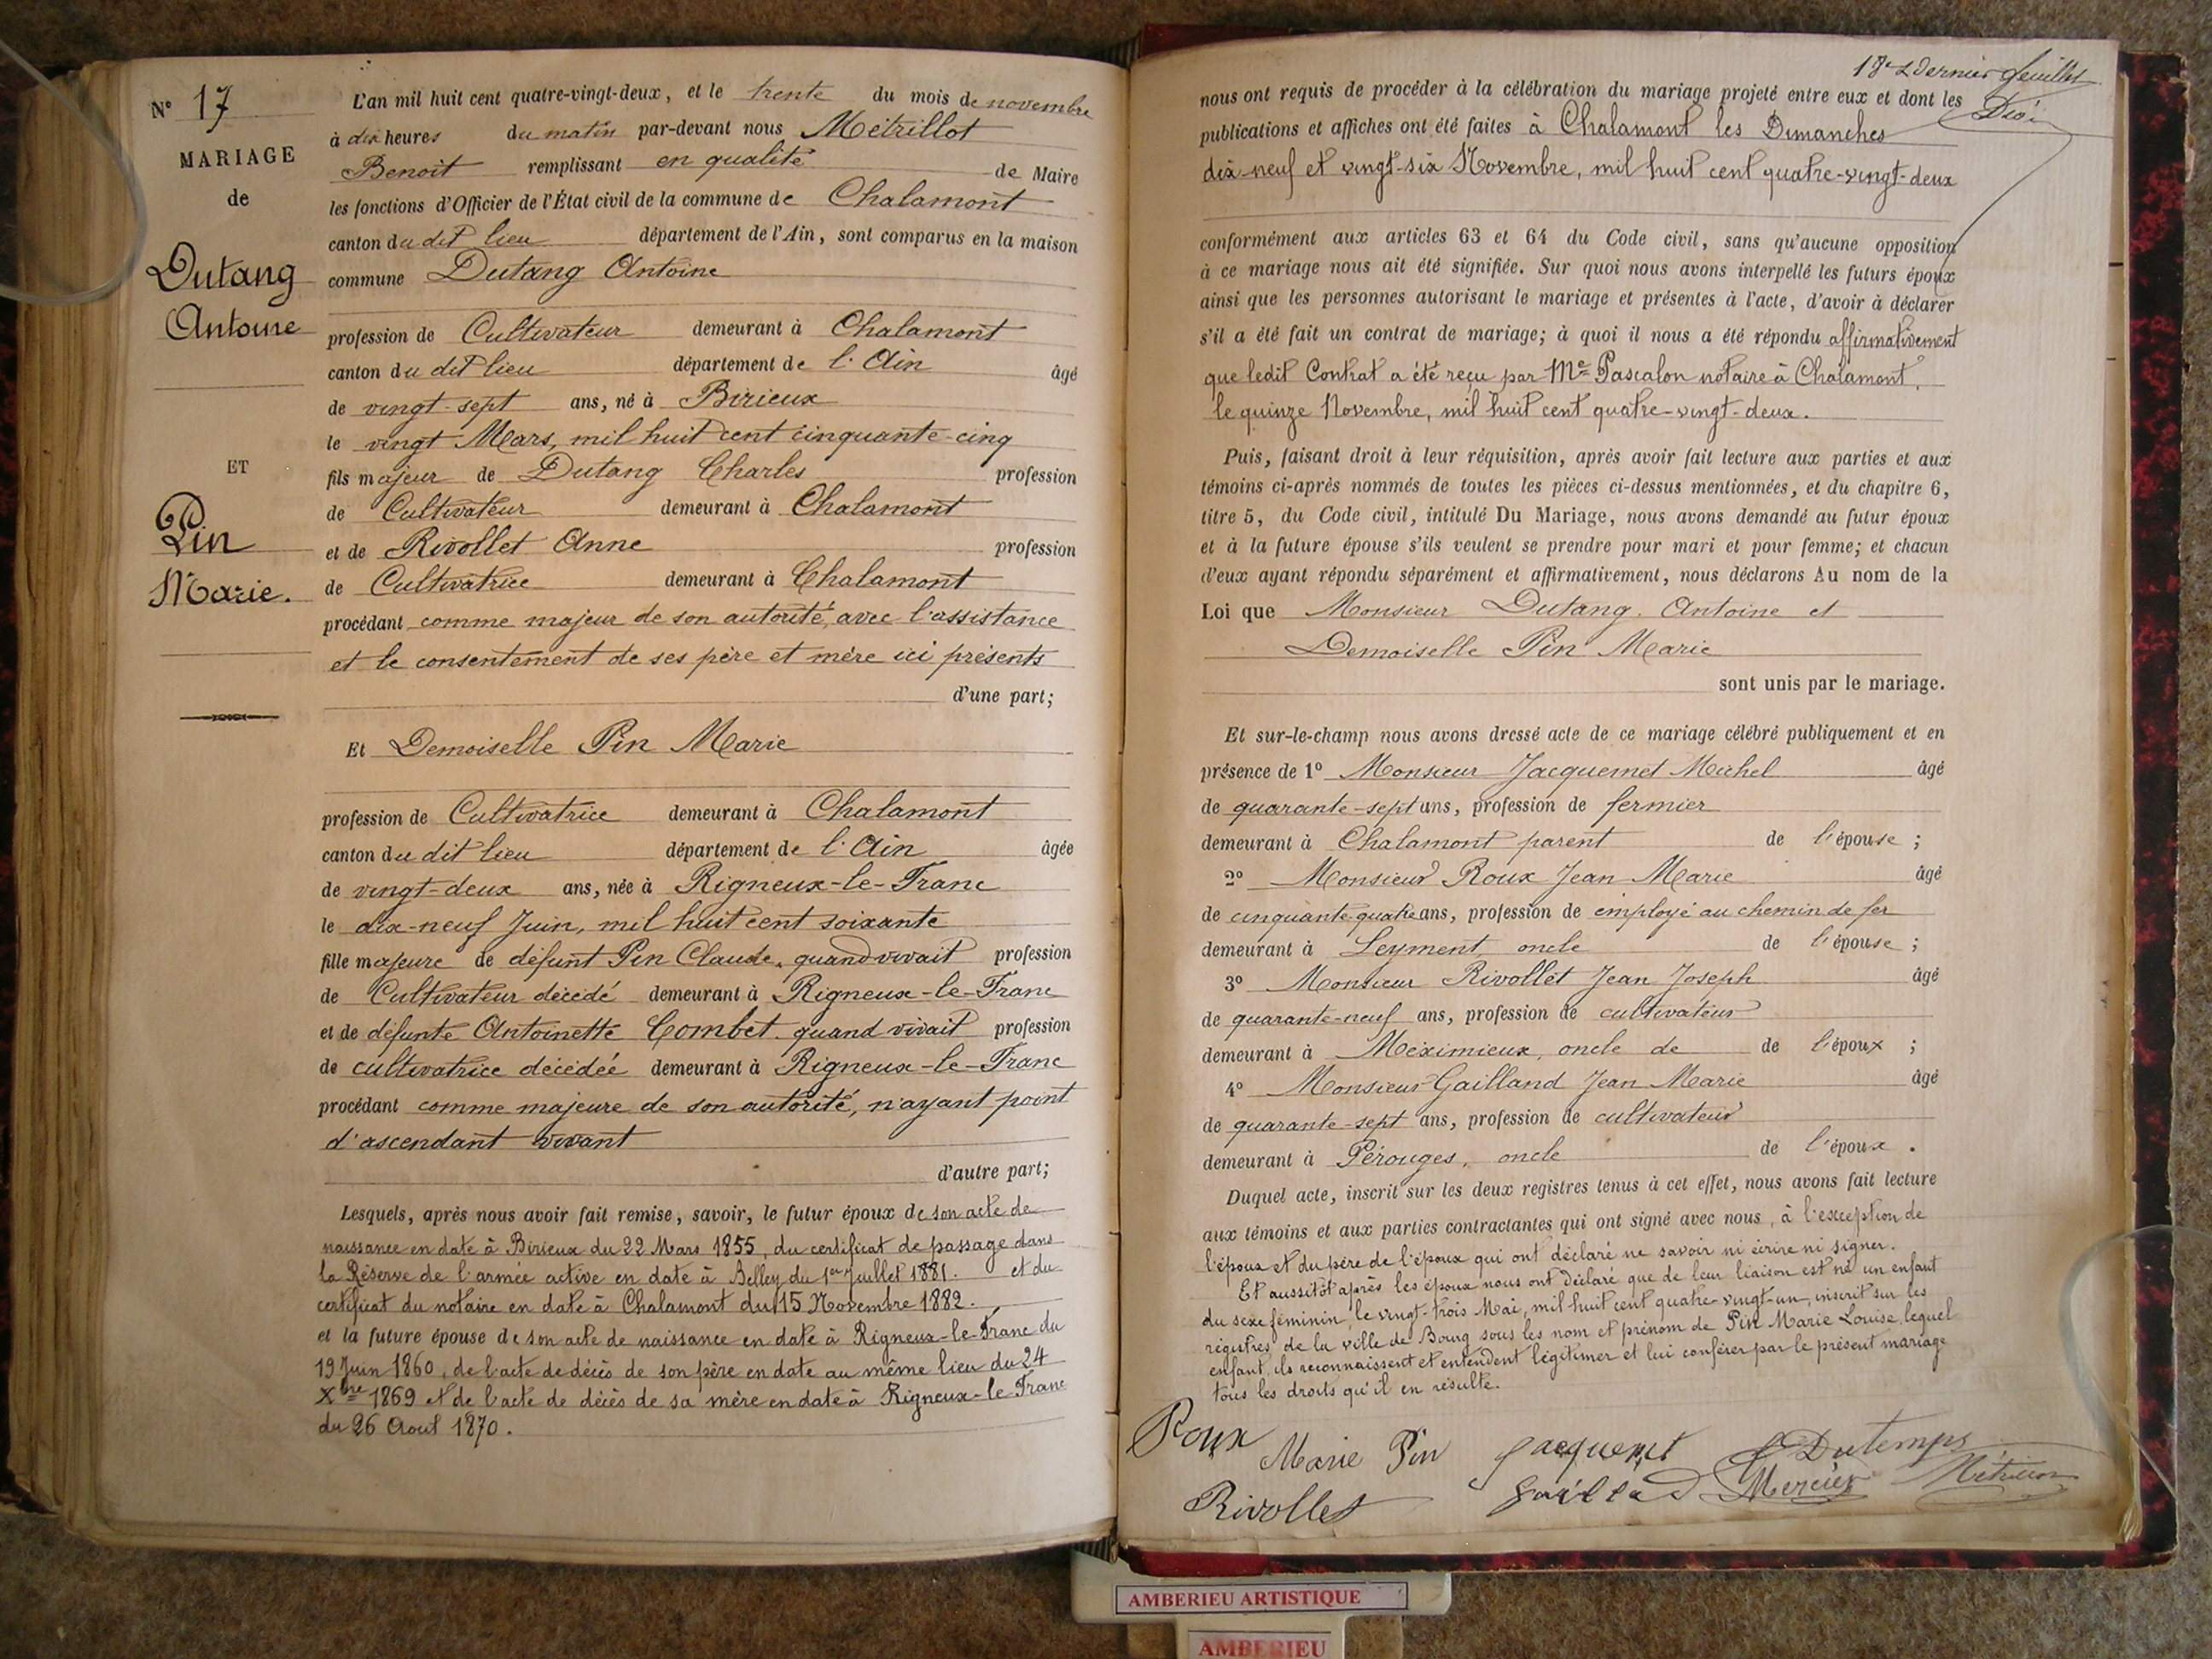 N° 17
MARIAGE
de
Dutang
Antoine
ET
Pin
Marie.
L'an mil huit cent quatre-vingt-deux, et le trente du mois de novembre
à dix heures du matin par-devant nous Métrillot
Benoit remplissant en qualité de Maire
les fonctions d'Officier de l'État civil de la commune de Chalamont
canton du dit lieu département de l'Ain, sont comparus en la maison
commune Dutang Antoine
profession de Cultivateur demeurant à Chalamont
canton du dit lieu département de l'Ain âgé
de vingt-sept ans, né à Birieux
le vingt Mars, mil huit cent cinquante-cinq
fils majeur de Dutang Charles profession
de Cultivateur demeurant à Chalamont
et de Rivollet Anne profession
de Cultivatrice demeurant à Chalamont
procédant comme majeur de son autorité, avec l'assistance
et le consentement de ses père et mère ici présents
d'une part;
Et Demoiselle Pin Marie
profession de Cultivatrice demeurant à Chalamont
canton du dit lieu département de l'Ain âgée
de vingt-deux ans, née à Rigneux-le-Franc
le dix-neuf Juin, mil huit cent soixante
fille majeure de défunt Pin Claude, quand vivait profession
de Cultivateur décédé demeurant à Rigneux-le-Franc
et de défunte Antoinette Combet quand vivait profession
de cultivatrice décédée demeurant à Rigneux-le-Franc
procédant comme majeure de son autorité, n'ayant point
d'ascendant vivant
d'autre part;
Lesquels, après nous avoir fait remise, savoir, le futur époux de son acte de
naissance en date à Birieux du 22 Mars 1855, du certificat de passage dans
la Réserve de l'armée active en date à Belley du 1er Juillet 1881. et du
certificat du notaire en date à Chalamont du 15 Novembre 1882.
et la future épouse de son acte de naissance en date à Rigneux-le-Franc du
19 Juin 1860, de l'acte de décès de son père en date au même lieu du 24
Xbre 1869 et de l'acte de décès de sa mère en date à Rigneux-le-Franc
du 26 Aout 1870.
17e & dernier feuillet
nous ont requis de procéder à la célébration du mariage projeté entre eux et dont les
publications et affiches ont été faites à Chalamont les Dimanches
dix-neuf et vingt-six Novembre, mil huit cent quatre-vingt-deux
conformément aux articles 63 et 64 du Code civil, sans qu'aucune opposition
à ce mariage nous ait été signifiée. Sur quoi nous avons interpellé les futurs époux
ainsi que les personnes autorisant le mariage et présentes à l'acte, d'avoir à déclarer
s'il a été fait un contrat de mariage; à quoi il nous a été répondu affirmativement
que ledit Contrat a été reçu par Me Pascalon notaire à Chalamont,
le quinze Novembre, mil huit cent quatre-vingt-deux.
Puis, faisant droit à leur réquisition, après avoir fait lecture aux parties et aux
témoins ci-après nommés de toutes les pièces ci-dessus mentionnées, et du chapitre 6,
titre 5, du Code civil, intitulé Du Mariage, nous avons demandé au futur époux
et à la future épouse s'ils veulent se prendre pour mari et pour femme; et chacun
d'eux ayant répondu séparément et affirmativement, nous déclarons Au nom de la
Loi que Monsieur Dutang Antoine et
Demoiselle Pin Marie
sont unis par le mariage.
Et sur-le-champ nous avons dressé acte de ce mariage célébré publiquement et en
présence de 1° Monsieur Jacquemet Michel âgé
de quarante-sept ans, profession de fermier
demeurant à Chalamont parent de l'épouse;
2° Monsieur Roux Jean Marie âgé
de cinquante-quatre ans, profession de employé au chemin de fer
demeurant à Leyment, oncle de l'épouse;
3° Monsieur Rivollet Jean Joseph âgé
de quarante-neuf ans, profession de cultivateur
demeurant à Méximieux, oncle de de l'époux;
4° Monsieur Gailland Jean Marie âgé
de quarante-sept ans, profession de cultivateur
demeurant à Pérouges, oncle de l'époux.
Duquel acte, inscrit sur les deux registres tenus à cet effet, nous avons fait lecture
aux témoins et aux parties contractantes qui ont signé avec nous, à l'exception de
l'époux et du père de l'époux qui ont déclaré ne savoir ni écrire ni signer.
Et aussitôt après les époux nous ont déclaré que de leur liaison est né un enfant
du sexe féminin, le vingt-trois Mai, mil huit cent quatre-vingt-un, inscrit sur les
registres de la ville de Bourg sous les nom et prénom de Pin Marie Louise, lequel
enfant ils reconnaissent et entendent légitimer et lui conférer par le présent mariage
tous les droits qu'il en résulte.
Roux Marie Pin Jacquemet Dutemps
Rivollet Mercier
AMBERIEU ARTISTIQUE
AMBERIEU